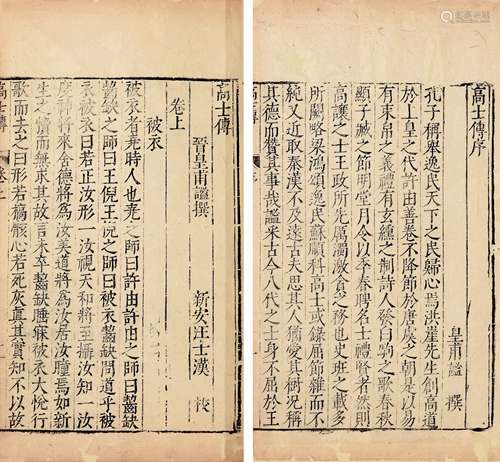 高士傳序
皇甫謐 撰
孔子稱舉逸民天下之民歸心焉洪崖先生創高道
於上皇之代許由善卷不降節於唐虞之朝是以易
有束帛之義禮有玄纁之制詩人發白駒之歌春秋
顯子臧之節明堂月令以季春聘名士禮賢者然則
高讓之士王政所先厲濁激貪之務也史班之載多
所闕略梁鴻頌逸民蘇順科高士或錄屈節雜而不
純又近取秦漢不及遠古夫思其人猶愛其樹況稱
其德而贊其事哉謐采古今八代之士身不屈於王
高士傳
卷上
晉皇甫謐撰 新安汪士漢 校
被衣
被衣者堯時人也堯之師曰許由許由之師曰齧缺
齧缺之師曰王倪王倪之師曰被衣齧缺問道乎被
衣被衣曰若正汝形一汝視天和將至攝汝知一汝
度神將來舍德將爲汝美道將爲汝居汝瞳焉如新
生之犢而無求其故言未卒齧缺睡寐被衣大悅行
歌而去之曰形若槁骸心若死灰眞其實知不以故
高士傳 卷上